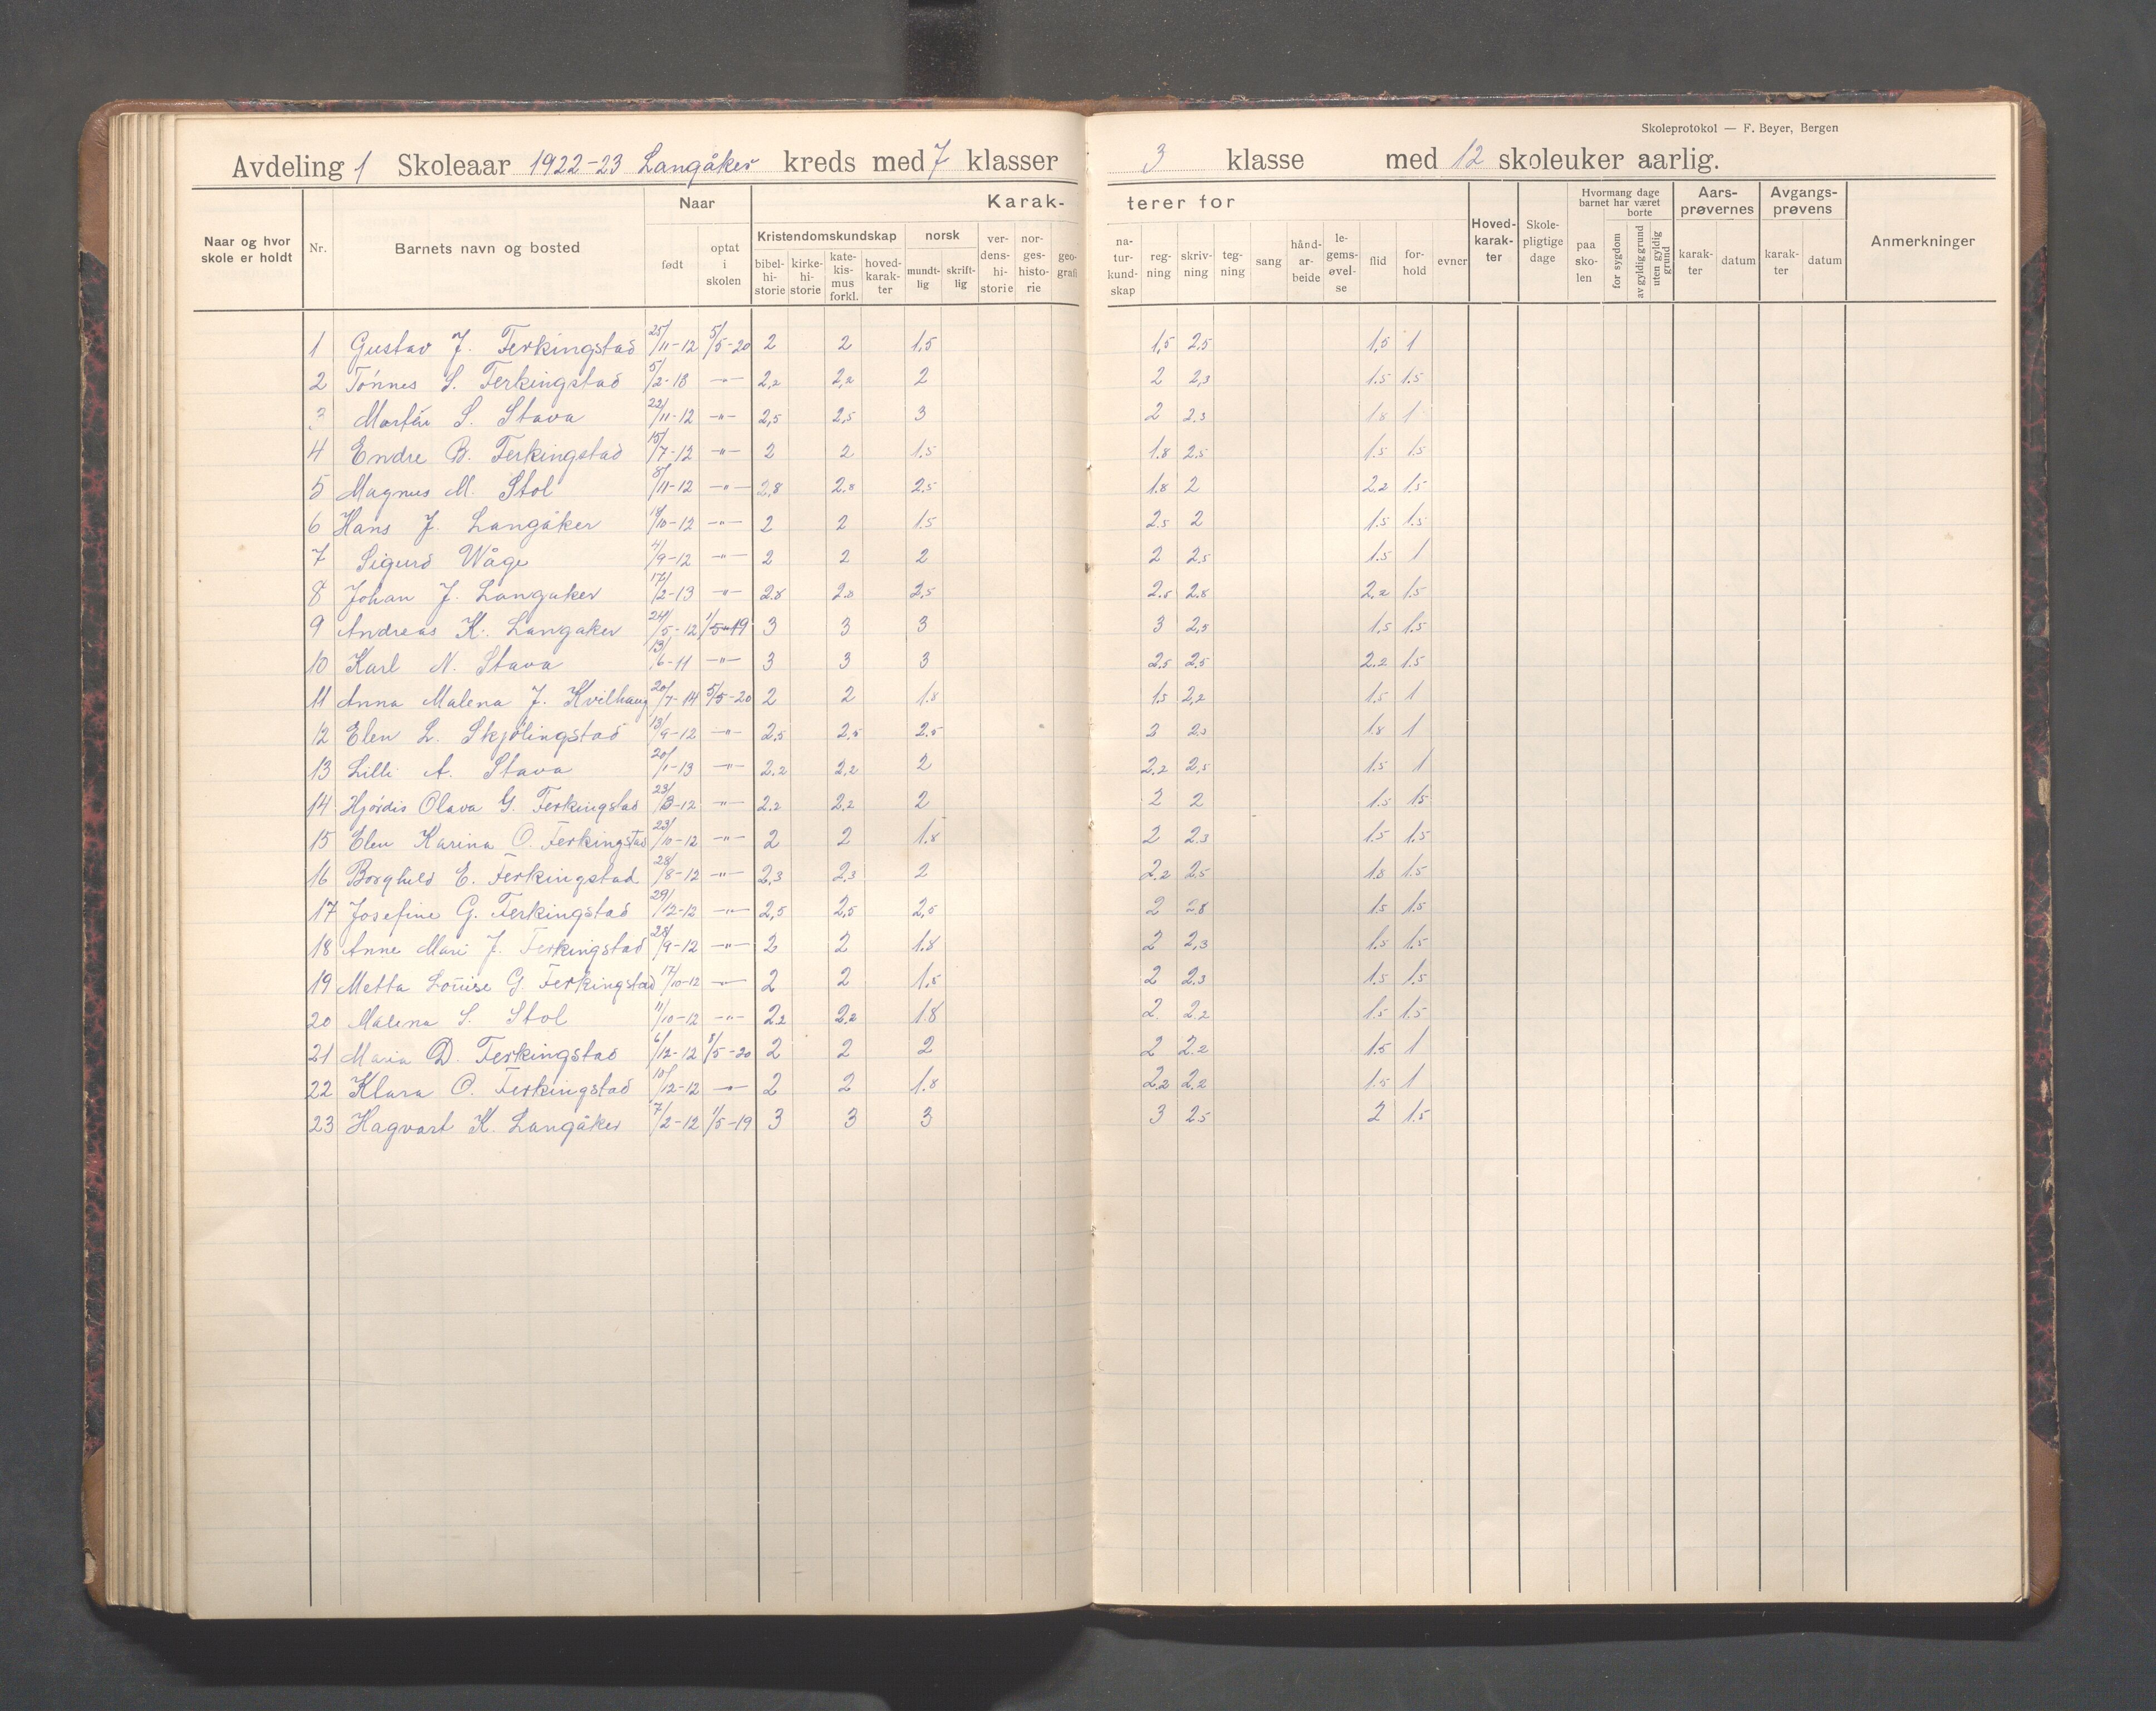 Skoleprotokol — F. Beyer, Bergen
Avdeling 1 Skoleaar 1922-23 Langåker kreds med 7 klasser 3 klasse med 12 skoleuker aarlig.
Naar og hvor skole er holdt Nr. Barnets navn og bosted Naar født optat i skolen Karak- terer for
Kristendomskundskap bibel-hi-storie kirke-hi-storie kate-kis-mus forkl. hoved-karak-ter norsk mundt-lig skrift-lig ver-dens-hi-storie nor-ges-histo-rie geo-grafi
na-tur-kund-skap reg-ning skriv-ning teg-ning sang hånd-ar-beide le-gems-øvel-se flid for-hold evner Hoved-karak-ter Skole-pligtige dage
Hvormang dage barnet har været paa sko-len borte for sygdom av gyldig grund uten gyldig grund Aars-prøvernes karak-ter datum Avgangs-prøvens karak-ter datum Anmerkninger
1 Gustav J. Ferkingstad 25/11-12 5/5-20 2 2 1,5 1,5 2.5 1,5 1
2 Tønnes S. Ferkingstad 5/2-13 -"- 2,2 2,2 2 2 2,3 1.5 1.5
3 Martin S. Stava 22/11-12 -"- 2,5 2,5 3 2 2.3 1.8 1
4 Endre B. Ferkingstad 15/7-12 -"- 2 2 1.5 1.8 2.5 1.5 1.5
5 Magnus M. Stol 8/11-12 -"- 2,8 2.8 2.5 1.8 2 2.2 1.5
6 Hans J. Langåker /10-12 -"- 2 2 1.5 2.5 2 1.5 1.5
7 Sigurd Våge 4/9-12 -"- 2 2 2 2 2.5 1.5 1
8 Johan J. Langaker 17/2-13 -"- 2.8 2.8 2,5 2.5 2.8 2.2 1.5
9 Andreas K. Langaker 24/5-12 1/5-19 3 3 3 3 2,5 1.5 1.5
10 Karl N. Stava 13/6-11 -"- 3 3 3 2.5 2.5 2.2 1.5
11 Anna Malena J. Kvilhaug 20/7-14 5/5-20 2 2 1.8 1.5 2,2 1.5 1
12 Elen L. Skjølingstad 13/9-12 -"- 2,5 2.5 2.5 2 2.3 1.8 1
13 Lilli A. Stava 20/1-13 -"- 2.2 2,2 2 2.2 2,5 1.5 1
14 Hjørdis Olava G. Ferkingstad 23/ -12 -"- 2.2 2.2 2 2 2 1.5 1.5
15 Elen Karina O. Ferkingstad 23/10-12 -"- 2 2 1.8 2 2.3 1.5 1.5
16 Borghild E. Ferkingstad 28/8-12 -"- 2,3 2.3 2 2.2 2.5 1.8 1.5
17 Josefine G. Ferkingstad 29/12-12 -"- 2,5 2,5 2,5 2 2.8 1.5 1.5
18 Anne Mari J. Ferkingstad 28/9-12 -"- 2 2 1.8 2 2,3 1.5 1.5
19 Metta Louise G. Ferkingstad 17/10-12 -"- 2 2 1,5 2 2.3 1.5 1.5
20 Malena S. Stol 11/10-12 -"- 2.2 2.2 1.8 2 2.2 1.5 1.5
21 Maria D. Ferkingstad 6/12-12 /5-20 2 2 2 2 2.2 1.5 1
22 Klara O. Ferkingstad 10/12-12 -"- 2 2 1.8 2.2 2.2 1.5 1
23 Hagvart K. Langåker 7/2-12 1/5-19 3 3 3 3 2.5 2 1.5